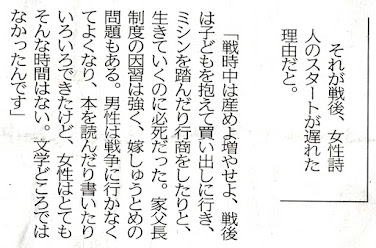 それが戦後、女性詩
人のスタートが遅れた
理由だと。
「戦時中は産めよ増やせよ、戦後
は子どもを抱えて買い出しに行き、
ミシンを踏んだり行商をしたりと、
生きていくのに必死だった。家父長
制度の因習は強く、嫁しゅうとめの
問題もある。男性は戦争に行かなく
てよくなり、本を読んだり書いたり
いろいろできたけど、女性はとても
そんな時間はない。文学どころでは
なかったんです」